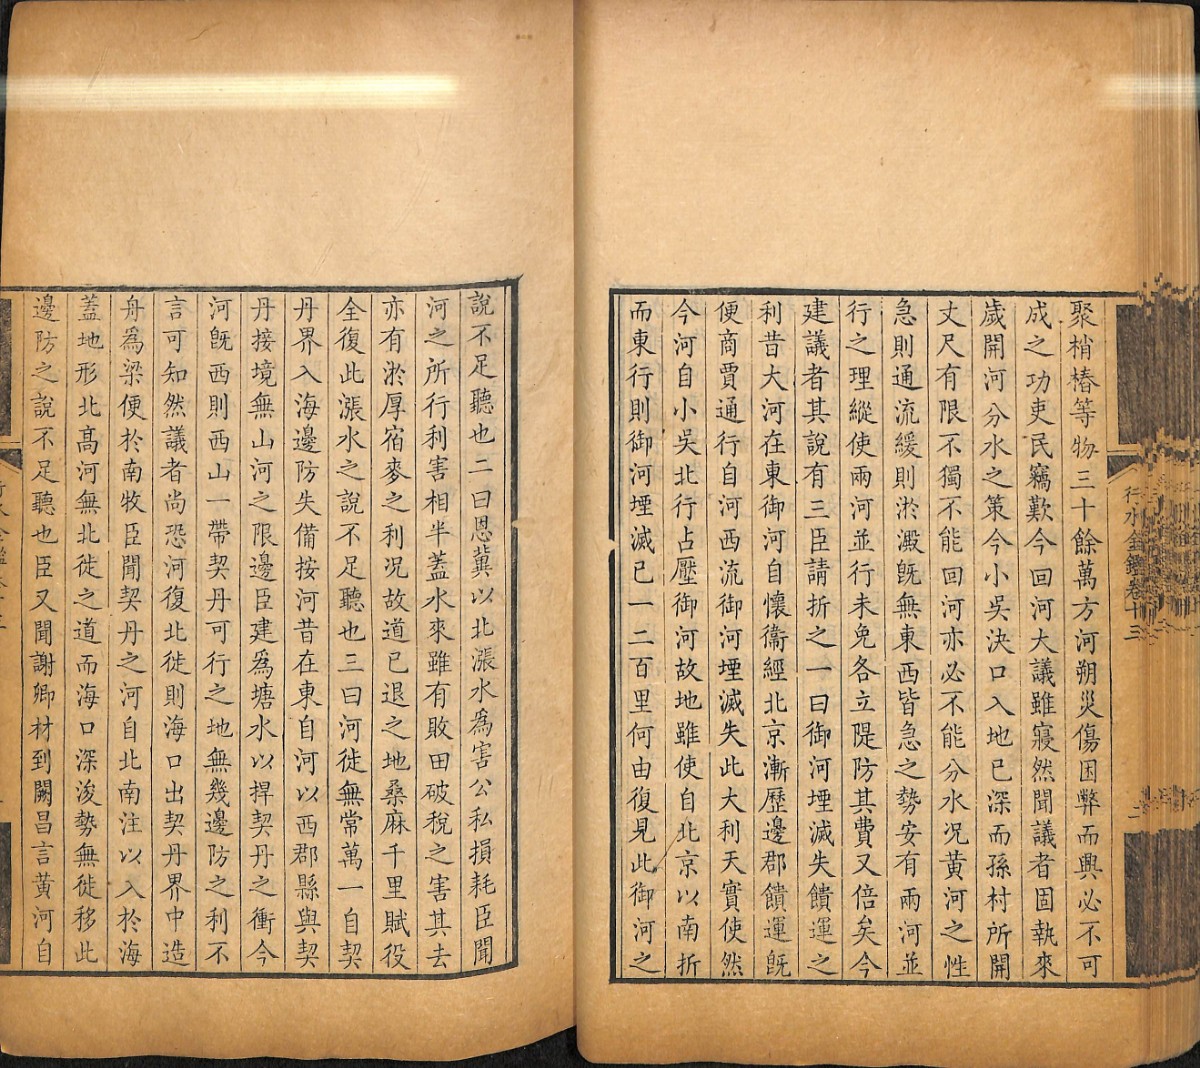 聚梢樁等物三十餘萬方河朔災傷困弊而興必不可
成之功吏民竊歎今回河大議雖寢然聞議者固執來
歲開河分水之策今小吳決口入地已深而孫村所開
丈尺有限不獨不能回河亦必不能分水况黃河之性
急則通流緩則淤澱旣無東西皆急之勢安有兩河並
行之理縱使兩河並行未免各立隄防其費又倍矣今
建議者其說有三臣請折之一曰御河堙滅失饋運之
利昔大河在東御河自懷衞經北京漸歷邊郡饋運旣
便商賈通行自河西流御河堙滅失此大利天實使然
今河自小吳北行占壓御河故地雖使自北京以南折
而東行則御河堙滅已一二百里何由復見此御河之
說不足聽也二曰恩冀以北漲水爲害公私損耗臣聞
河之所行利害相半蓋水來雖有敗田破稅之害其去
亦有淤厚宿麥之利况故道已退之地桑麻千里賦役
全復此漲水之說不足聽也三曰河徙無常萬一自契
丹界入海邊防失備按河昔在東自河以西郡縣與契
丹接境無山河之限邊臣建爲塘水以捍契丹之衝今
河旣西則西山一帶契丹可行之地無幾邊防之利不
言可知然議者尚恐河復北徙則海口出契丹界中造
舟爲梁便於南牧臣聞契丹之河自北南注以入於海
蓋地形北高河無北徙之道而海口深浚勢無徙移此
邊防之說不足聽也臣又聞謝卿材到闕昌言黃河自
行水金鑑卷十三
二